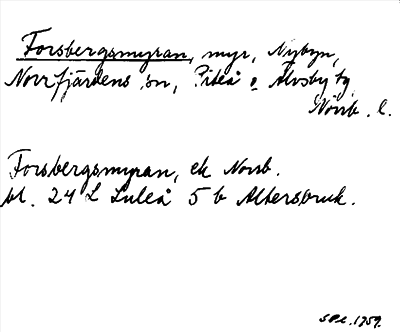 Forsbergsmyran, myr, Nybyn,
Norrfjärdens sn, Piteå o Älvsby tg
Norrb. l.
Forsbergsmyran, ek Norrb.
bl. 24 L Luleå 5 b Altersbruk.
1959.